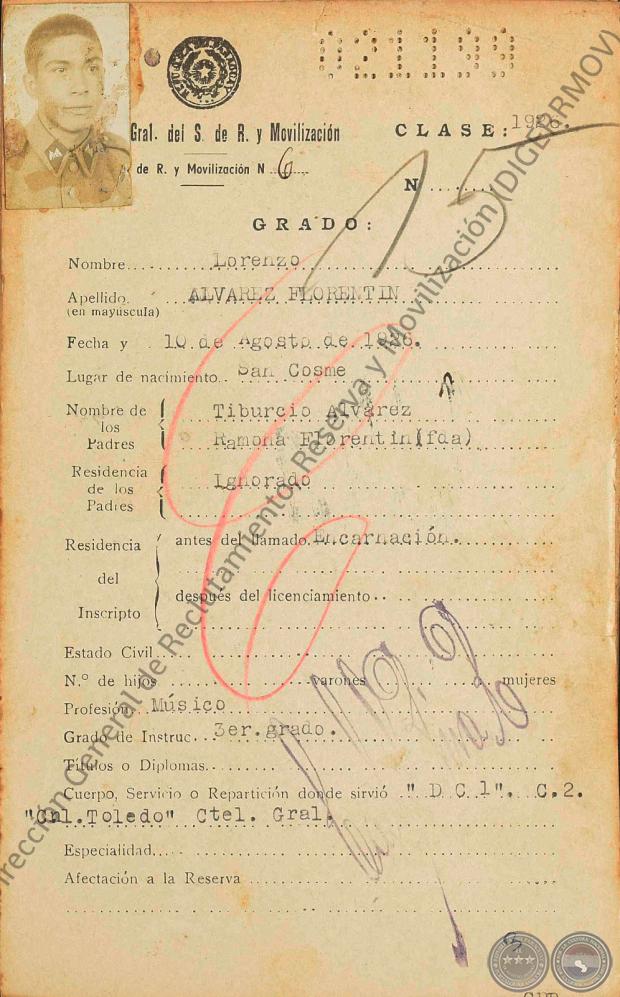 021199
Gral. del S. de R. y Movilización
CLASE: 1926.
de R. y Movilización N 6
N ........ 75
GRADO:
Nombre Lorenzo
Apellido. ALVAREZ FLORENTIN
(en mayúscula)
Fecha y 10 de Agosto de 1926.
Lugar de nacimiento. San Cosme
Nombre de los Padres Tiburcio Alvarez
Ramona Florentin(fda)
Residencia de los Padres Ignorado
Residencia del Inscripto antes del llamado. Encarnación.
después del licenciamiento
Estado Civil
N.º de hijos varones mujeres
Profesión. Músico
Grado de Instruc. 3er.grado.
Títulos o Diplomas.
Cuerpo, Servicio o Repartición donde sirvió " D C 1". C.2.
"Cnl.Toledo" Ctel. Gral.
Especialidad.
Afectación a la Reserva
Dirección General de Reclutamiento, Reserva y Movilización (DIGERRMOV)